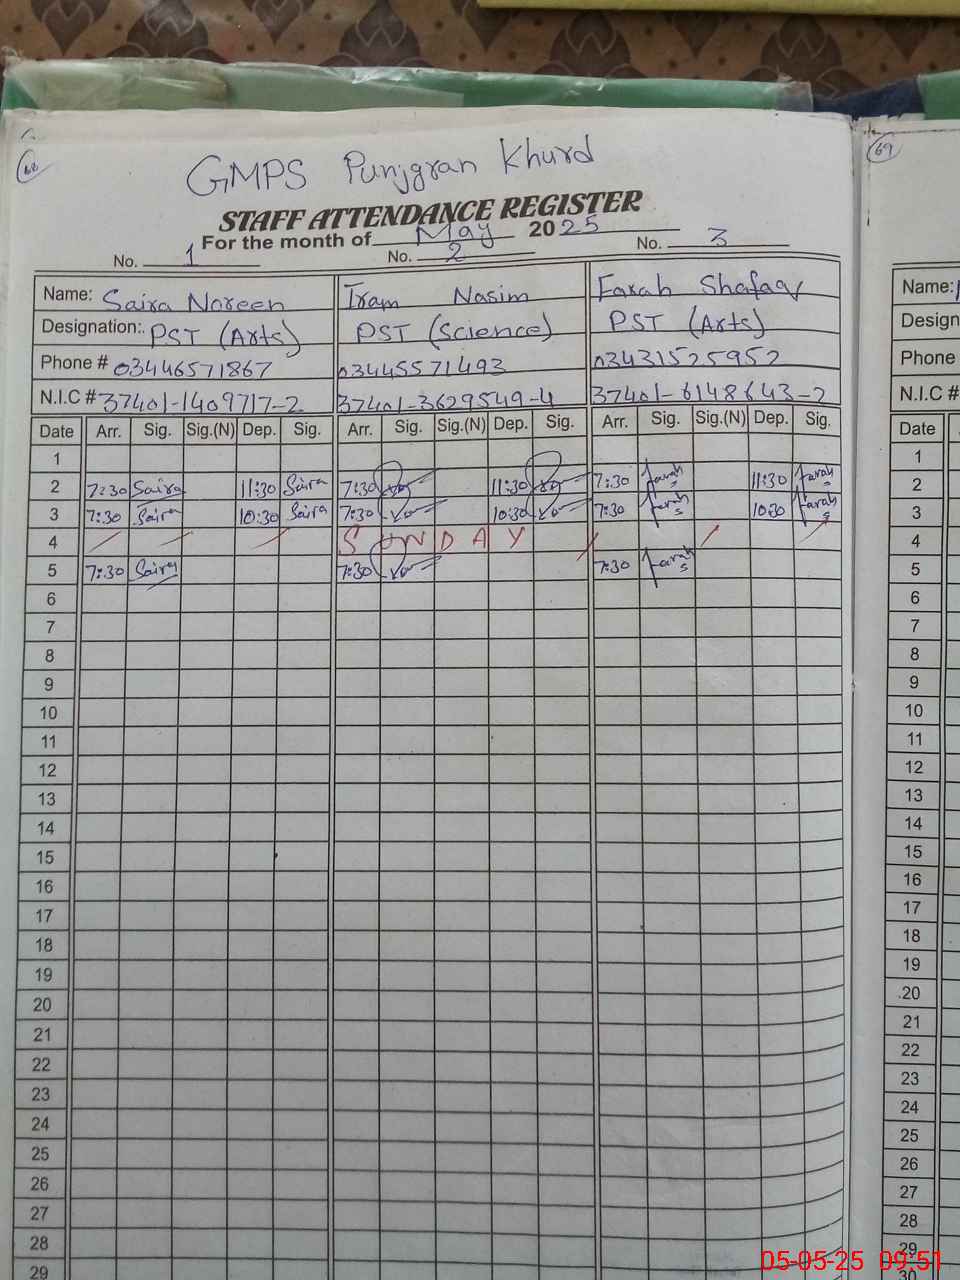 68
GMPS Punjgran Khurd
STAFF ATTENDANCE REGISTER
For the month of May 2025
No. 1 No. 2 No. 3
Name: Saira Noreen Iram Nasim Farah Shafaq
Designation:. PST (Arts) PST (Science) PST (Arts)
Phone # 03446571867 03445571493 03431525952
N.I.C # 37401-1409717-2 37401-3629549-4 37401-6148643-2
Date Arr. Sig. Sig.(N) Dep. Sig. Arr. Sig. Sig.(N) Dep. Sig. Arr. Sig. Sig.(N) Dep. Sig.
1
2 7:30 Saira 11:30 Saira 7:30 11:30 7:30 Farah S 11:30 Farah S
3 7:30 Saira 10:30 Saira 7:30 10:30 7:30 Farah S 10:30 Farah S
4 SUNDAY
5 7:30 Saira 7:30 7:30 Farah S
6
7
8
9
10
11
12
13
14
15
16
17
18
19
20
21
22
23
24
25
26
27
28
29
69
Name:
Design
Phone
N.I.C #
Date
1
2
3
4
5
6
7
8
9
10
11
12
13
14
15
16
17
18
19
20
21
22
23
24
25
26
27
28
29
30
05-05-25 09:51